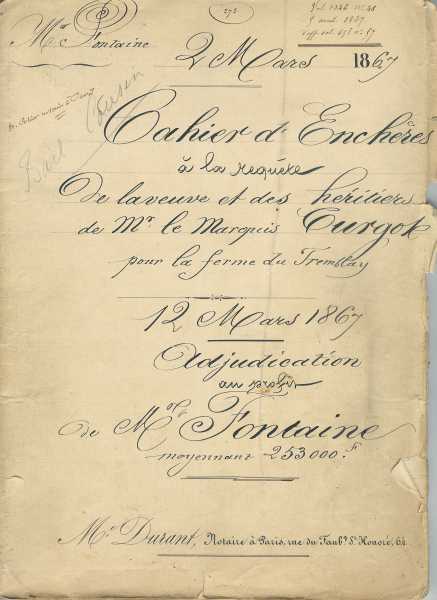 Mr Fontaine
275
2 Mars 1867
Cahier d'Enchères
à la requête
De la veuve et des héritiers
de Mr le Marquis Turgot
pour la ferme du Tremblay
12 Mars 1867
Adjudication
au profit
de Mr Fontaine
moyennant 253000.F
Me Durant, Notaire à Paris, rue du Faubg. St. Honoré, 64.